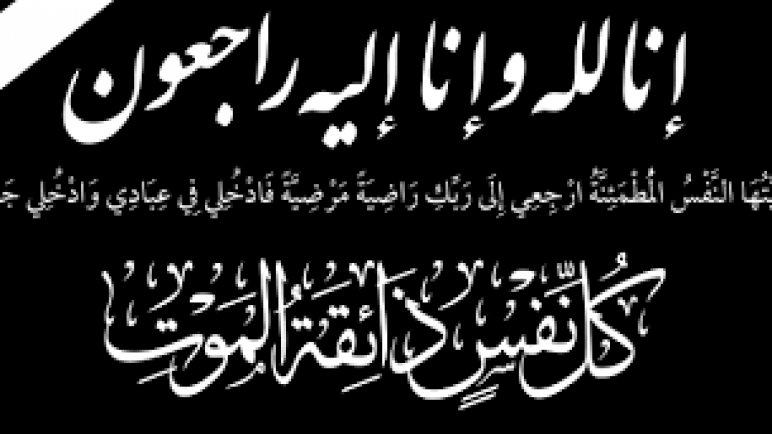 إنا لله وإنا إليه راجعون
النَّفْسُ الْمُطْمَئِنَّةُ ارْجِعِي إِلَى رَبِّكِ رَاضِيَةً مَرْضِيَّةً فَادْخُلِي فِي عِبَادِي وَادْخُلِي
كُلُّ نَفْسٍ ذَائِقَةُ الْمَوْتِ